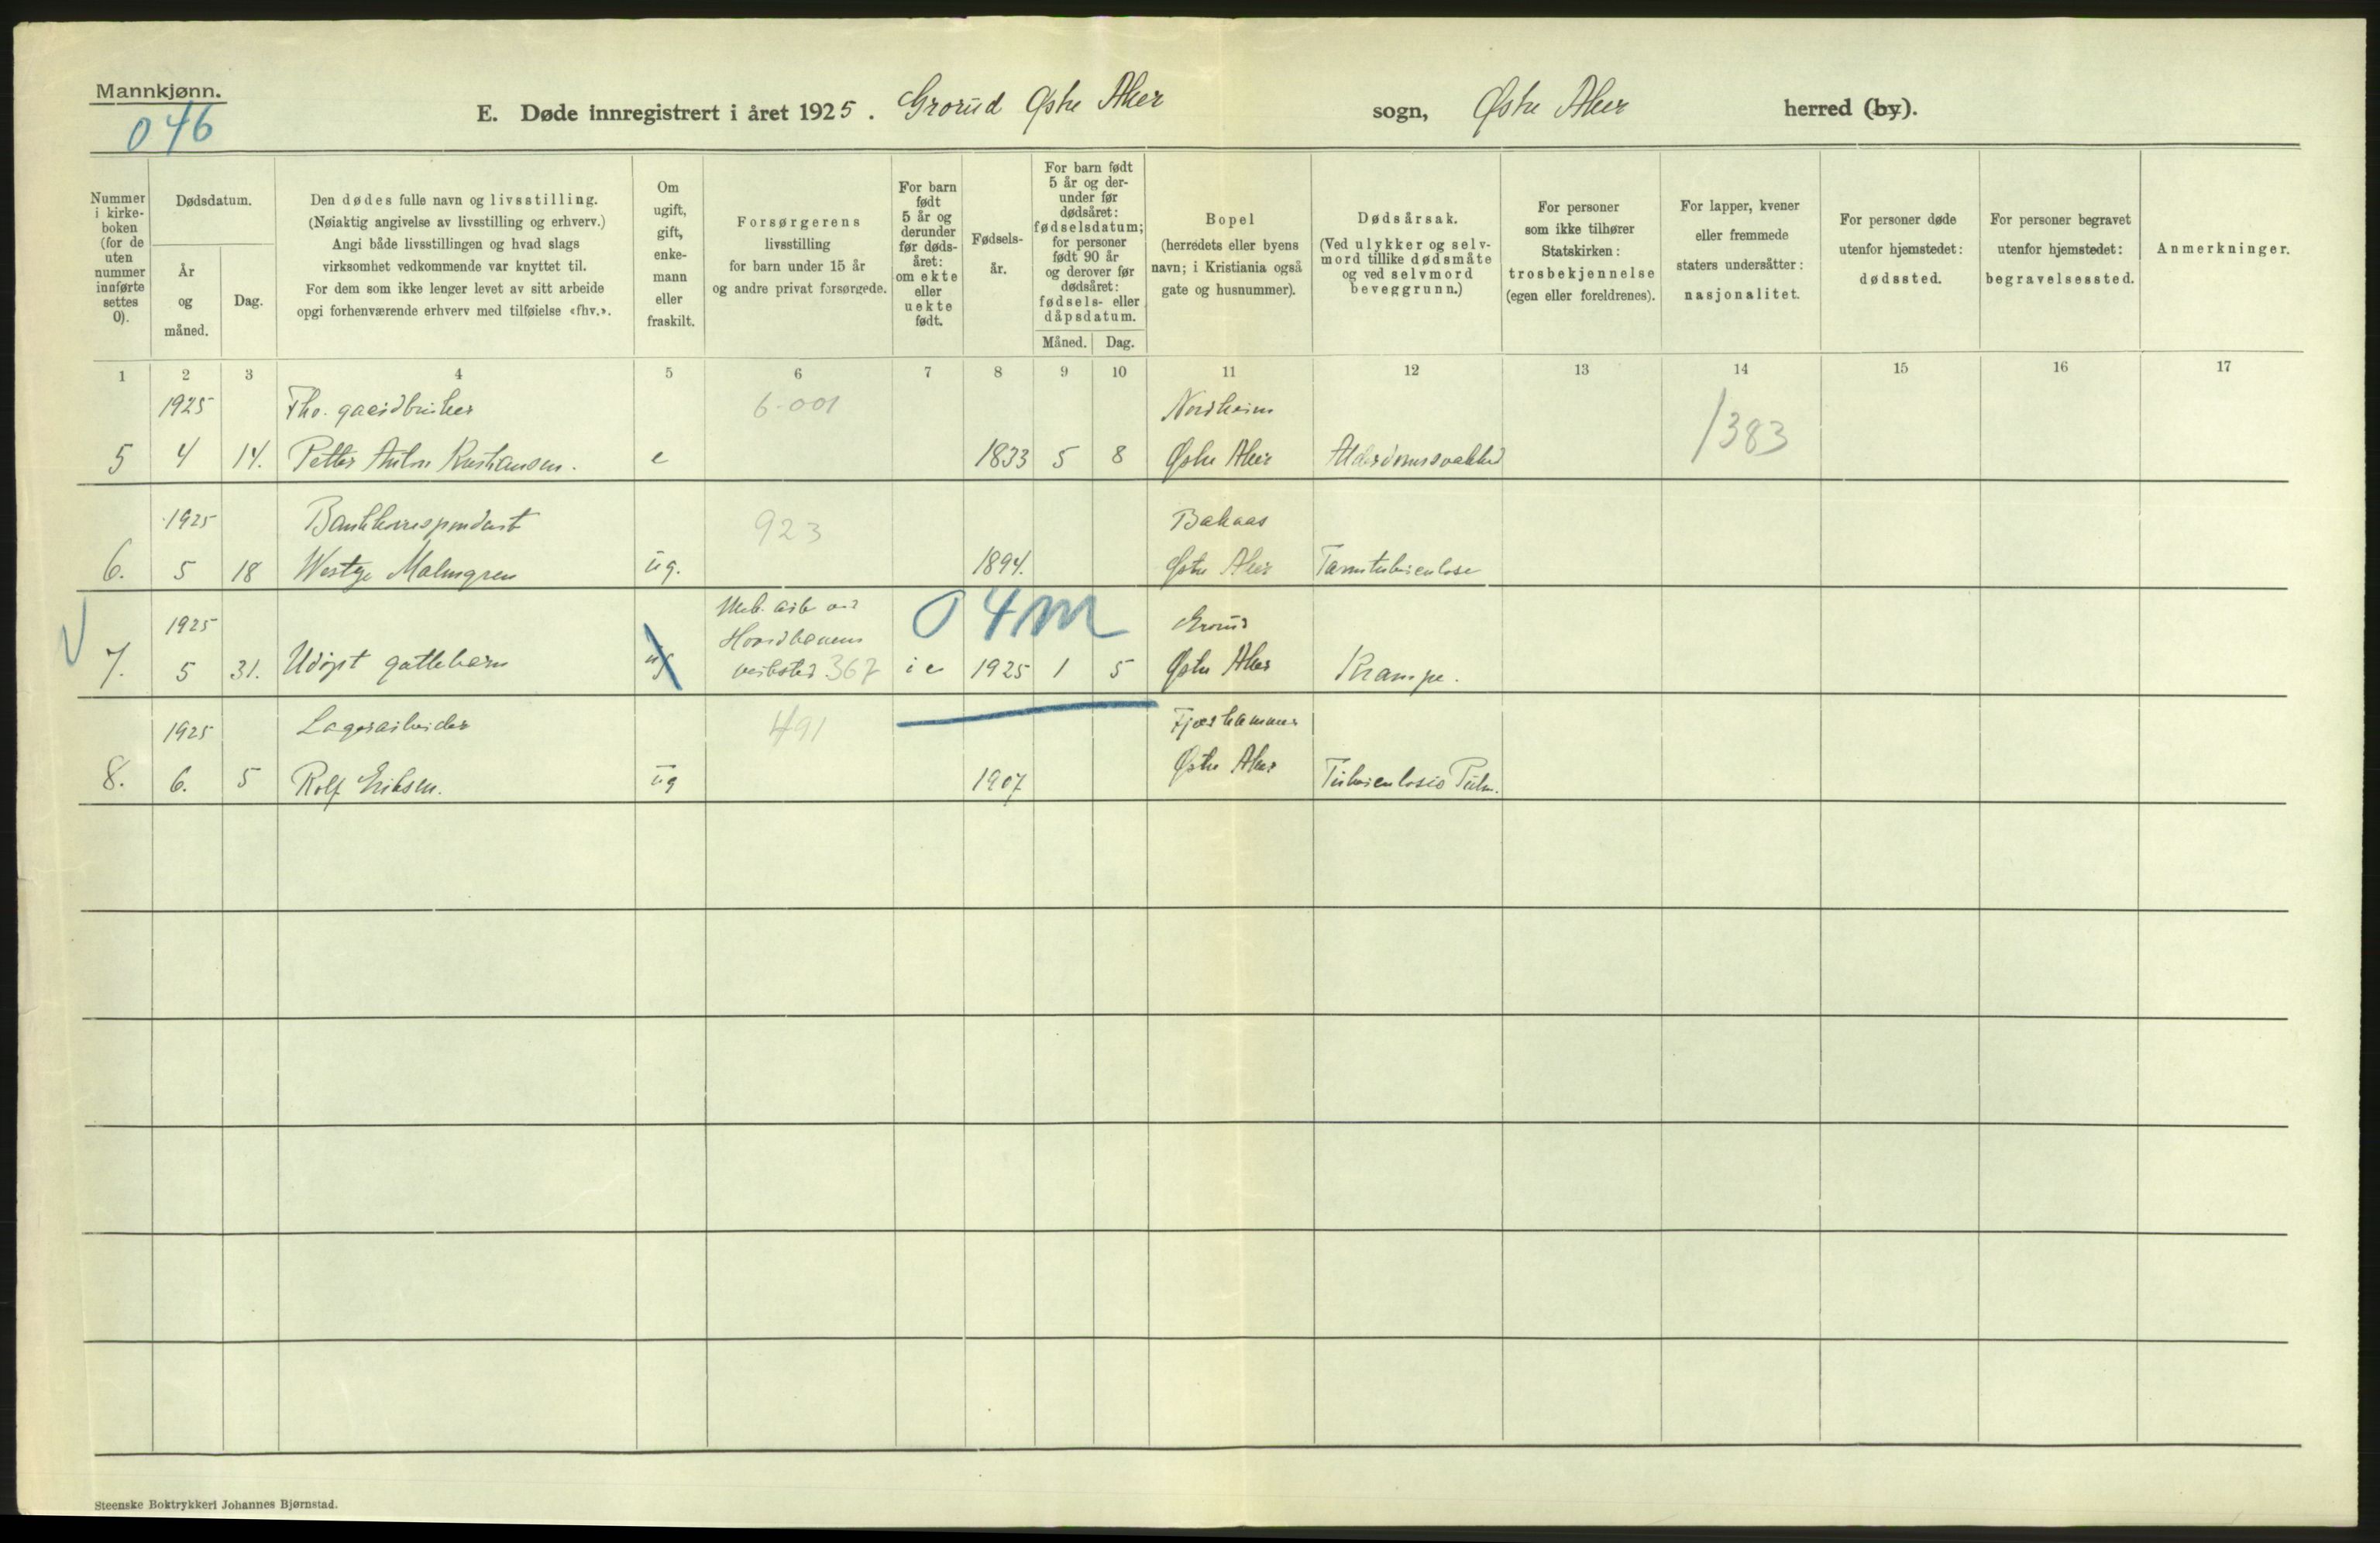 Mannkjønn.
046
E. Døde innregistrert i året 1925. Grorud Østre Aker sogn, Østre Aker herred (by).
Nummer i kirke-boken (for de uten nummer innførte settes 0).
Dødsdatum.
År og måned.
Dag.
Den dødes fulle navn og livsstilling.
(Nøiaktig angivelse av livsstilling og erhverv.)
Angi både livsstillingen og hvad slags
virksomhet vedkommende var knyttet til.
For dem som ikke lenger levet av sitt arbeide
opgi forhenværende erhverv med tilføielse «fhv.».
Om ugift, gift, enke-mann eller fraskilt.
Forsørgerens
livsstilling
for barn under 15 år
og andre privat forsørgede.
For barn født 5 år og derunder før døds-året: om ekte eller uekte født.
Fødsels-år.
For barn født 5 år og der-under før dødsåret: fødselsdatum; for personer født 90 år og derover før dødsåret: fødsels- eller dåpsdatum.
Måned.
Dag.
Bopel
(herredets eller byens
navn; i Kristiania også
gate og husnummer).
Dødsårsak.
(Ved ulykker og selv-
mord tillike dødsmåte
og ved selvmord
beveggrunn.)
For personer
som ikke tilhører
Statskirken:
trosbekjennelse
(egen eller foreldrenes).
For lapper, kvener
eller fremmede
staters undersåtter:
nasjonalitet.
For personer døde
utenfor hjemstedet:
dødssted.
For personer begravet
utenfor hjemstedet:
begravelsessted.
Anmerkninger.
1 2 3 4 5 6 7 8 9 10 11 12 13 14 15 16 17
1925 Fhv. gaardbruker 6-001 Nordheim 1383
5 4 14. Petter Anton Kristiansen. e 1833 5 8 Østre Aker Alderdomssvakhed
1925 Bankkorrespondent 923 Bakaas
6. 5 18 Westye Malmgren ug. 1894. Østre Aker Tarmtuberculose
1925 Mek. arb. ved Hovedbanens verksted 367 04m Grorud
7. 5 31. Udøpt guttebarn ug i e 1925 1 5 Østre Aker Krampe.
1925 Lagerarbeider 491 Fjeshammer
8. 6. 5 Rolf Eriksen. ug 1907 Østre Aker Tuberculosis Pulm.
Steenske Boktrykkeri Johannes Bjørnstad.